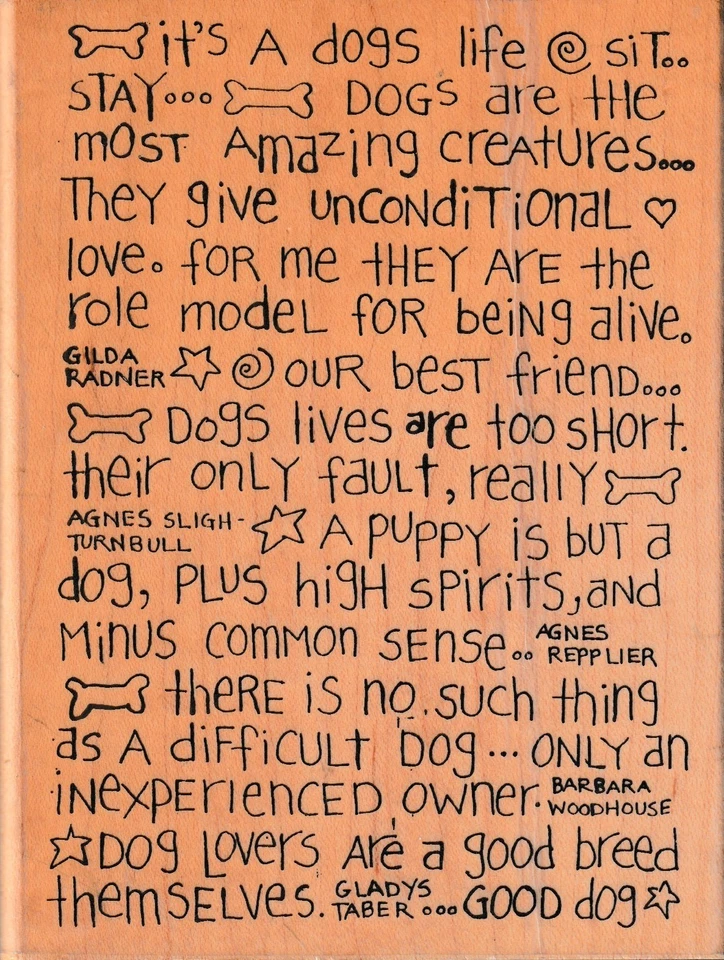 it's A dogs life @ SiT..
STAY... DOGS are tHe
mOST Amazing creAtUres...
They give unCoNdiTionaL
love. fOR me tHEY ArE the
role modeL fOR beiNg alive.
GILDA
RADNER @ OUR besT frienD...
DogS lives are too sHort.
their onLY faULt, reallY
AGNES SLIGH-
TURNBULL A PUPPY is bUT a
dog, PLUS higH sPiritS, aNd
MiNUS COmMOn SEnse.. AGNES
REPPLIER
theRE iS no such thing
as A diFFiCULt Dog... ONLY an
iNexPErienCED owner. BARBARA
WOODHOUSE
DOg Lovers Are a good breed
themSELVes. GLADYS
TABER ...GOOD dog